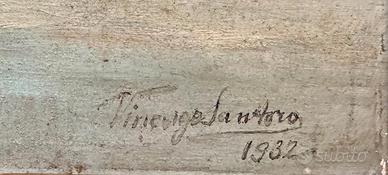 Vincenzo Santoro
1932
subito